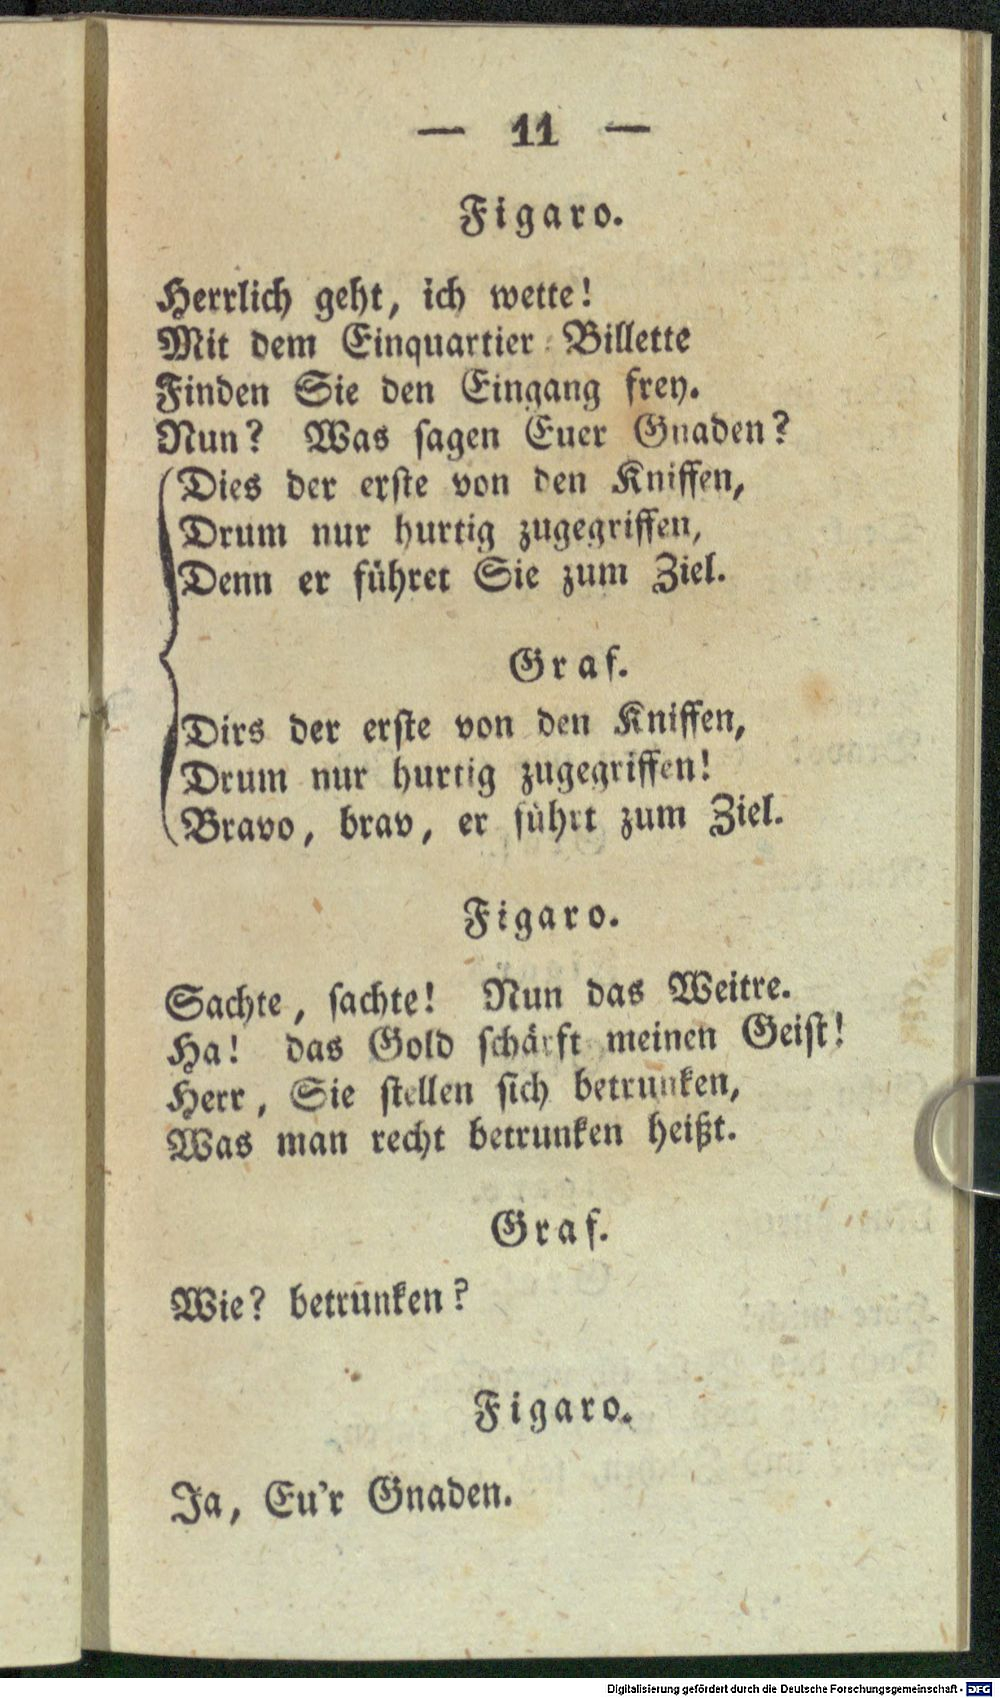 — 11 —
Figaro.
Herrlich geht, ich wette!
Mit dem Einquartier-Billette
Finden Sie den Eingang frey.
Nun? Was sagen Euer Gnaden?
Dies der erste von den Kniffen,
Drum nur hurtig zugegriffen,
Denn er führet Sie zum Ziel.
Graf.
Dirs der erste von den Kniffen,
Drum nur hurtig zugegriffen!
Bravo, brav, er führt zum Ziel.
Figaro.
Sachte, sachte! Nun das Weitre.
Ha! das Gold schärft meinen Geist!
Herr, Sie stellen sich betrunken,
Was man recht betrunken heißt.
Graf.
Wie? betrunken?
Figaro.
Ja, Eu'r Gnaden.
Digitalisierung gefördert durch die Deutsche Forschungsgemeinschaft - DFG